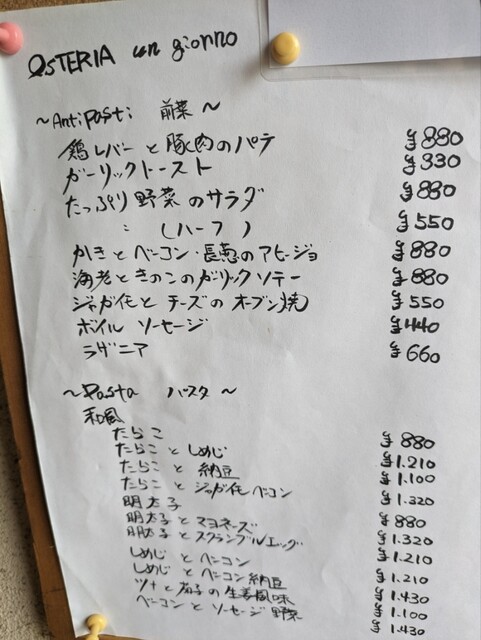 OSTERIA un giorno
～Antipasti 前菜～
鶏レバーと豚肉のパテ ¥880
ガーリックトースト ¥330
たっぷり野菜のサラダ ¥880
〃 (ハーフ) ¥550
かきとベーコン・長葱のアヒージョ ¥880
海老ときのこのガーリックソテー ¥880
ジャガイモとチーズのオーブン焼 ¥550
ボイルソーセージ ¥440
ラザニア ¥660
～Pasta パスタ～
和風
たらこ ¥880
たらことしめじ ¥1.210
たらこと納豆 ¥1.100
たらことジャガイモベーコン ¥1.320
明太子 ¥880
明太子とマヨネーズ ¥1.320
明太子とスクランブルエッグ ¥1.210
しめじとベーコン ¥1.210
しめじとベーコン納豆 ¥1.430
ツナと茄子の生姜風味 ¥1.100
ベーコンとソーセージ野菜 ¥1.430